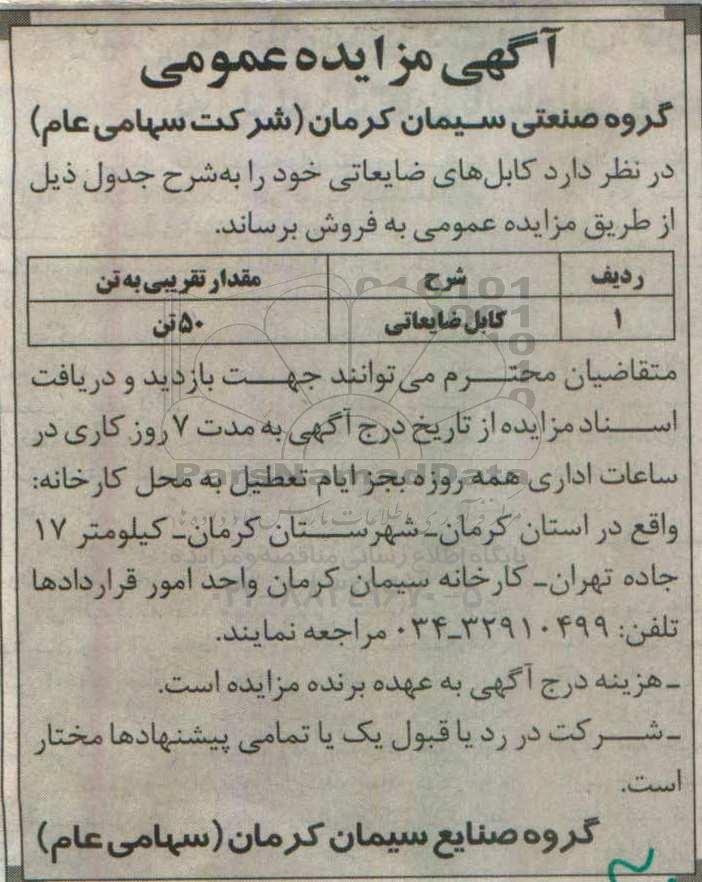 آگهی مزایده عمومی
گروه صنعتی سیمان کرمان (شرکت سهامی عام)
در نظر دارد کابل‌های ضایعاتی خود را به‌شرح جدول ذیل
از طریق مزایده عمومی به فروش برساند.
ردیف شرح مقدار تقریبی به تن
۱ کابل ضایعاتی ۵۰ تن
متقاضیان محترم می‌توانند جهت بازدید و دریافت
اسناد مزایده از تاریخ درج آگهی به مدت ۷ روز کاری در
ساعات اداری همه روزه بجز ایام تعطیل به محل کارخانه:
ParsNamadData
واقع در استان کرمان_شهرستان کرمان_کیلومتر ۱۷
پایگاه اطلاع رسانی مناقصه و مزایده
جاده تهران_کارخانه سیمان کرمان واحد امور قراردادها
تلفن: ۳۲۹۱۰۴۹۹_۰۳۴ مراجعه نمایند.
_هزینه درج آگهی به عهده برنده مزایده است.
_شرکت در رد یا قبول یک یا تمامی پیشنهادها مختار
است.
گروه صنایع سیمان کرمان (سهامی عام)